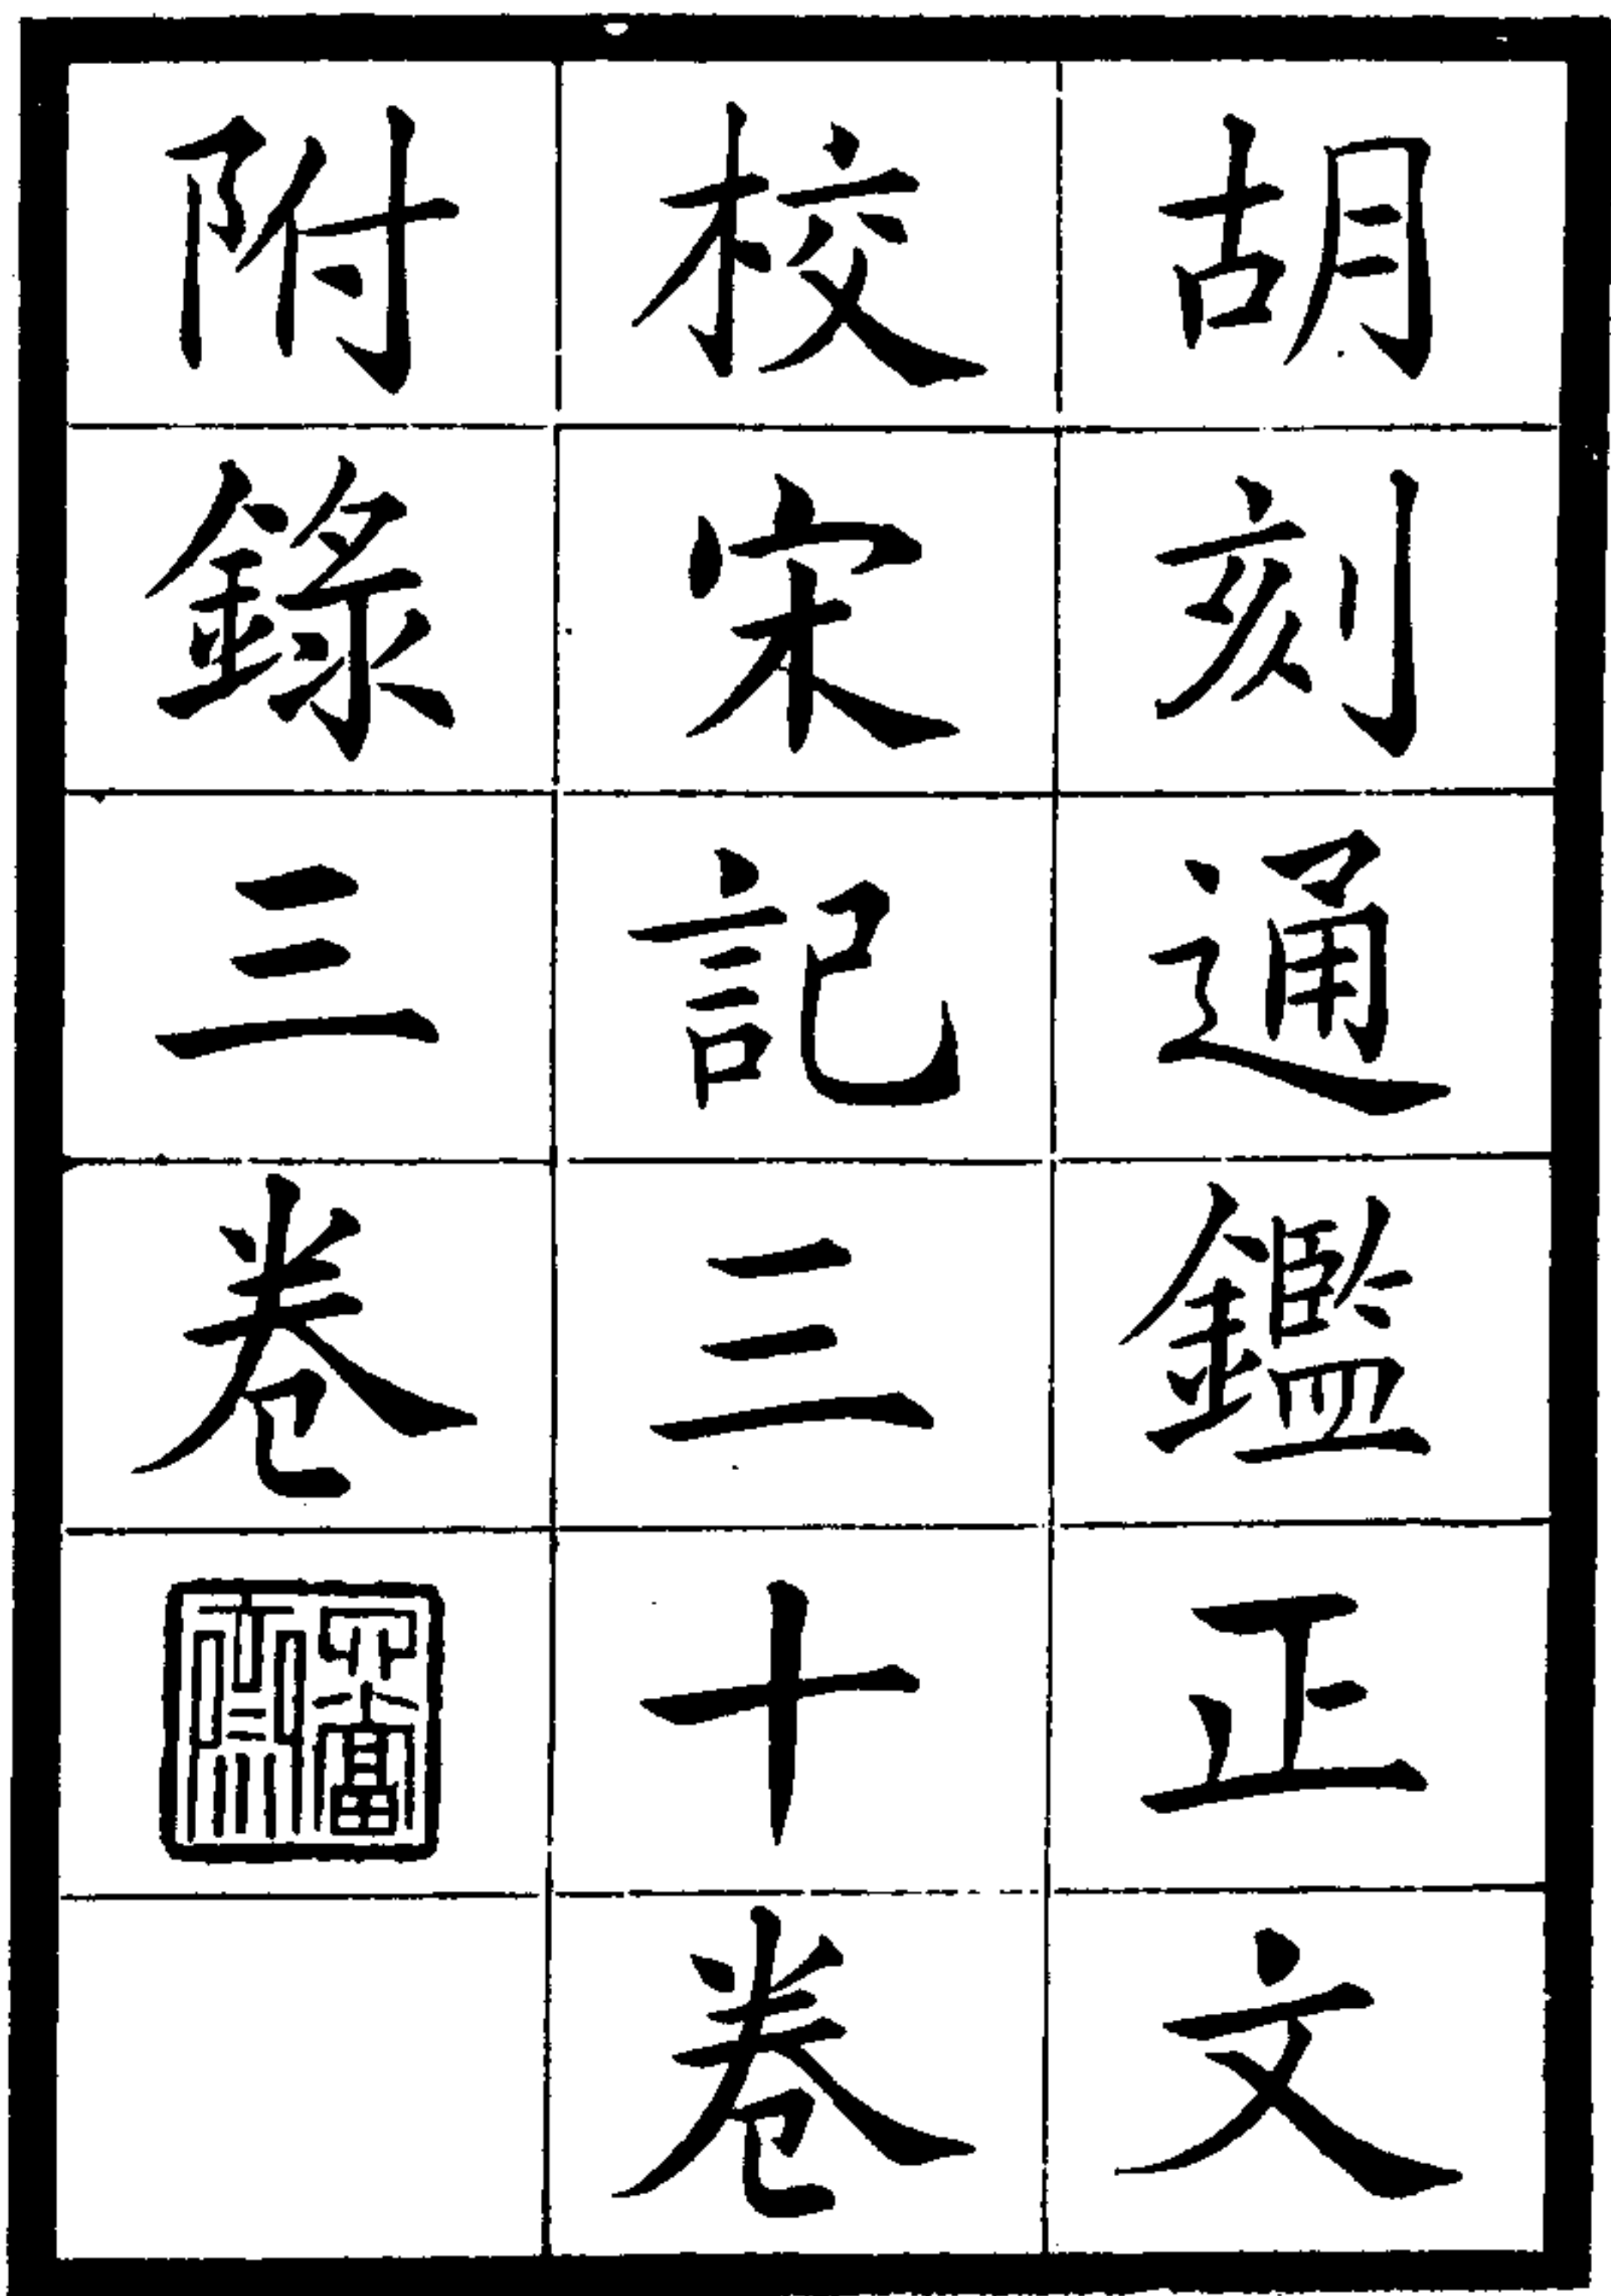 胡刻通鑑正文
校宋記三十卷
附錄三卷